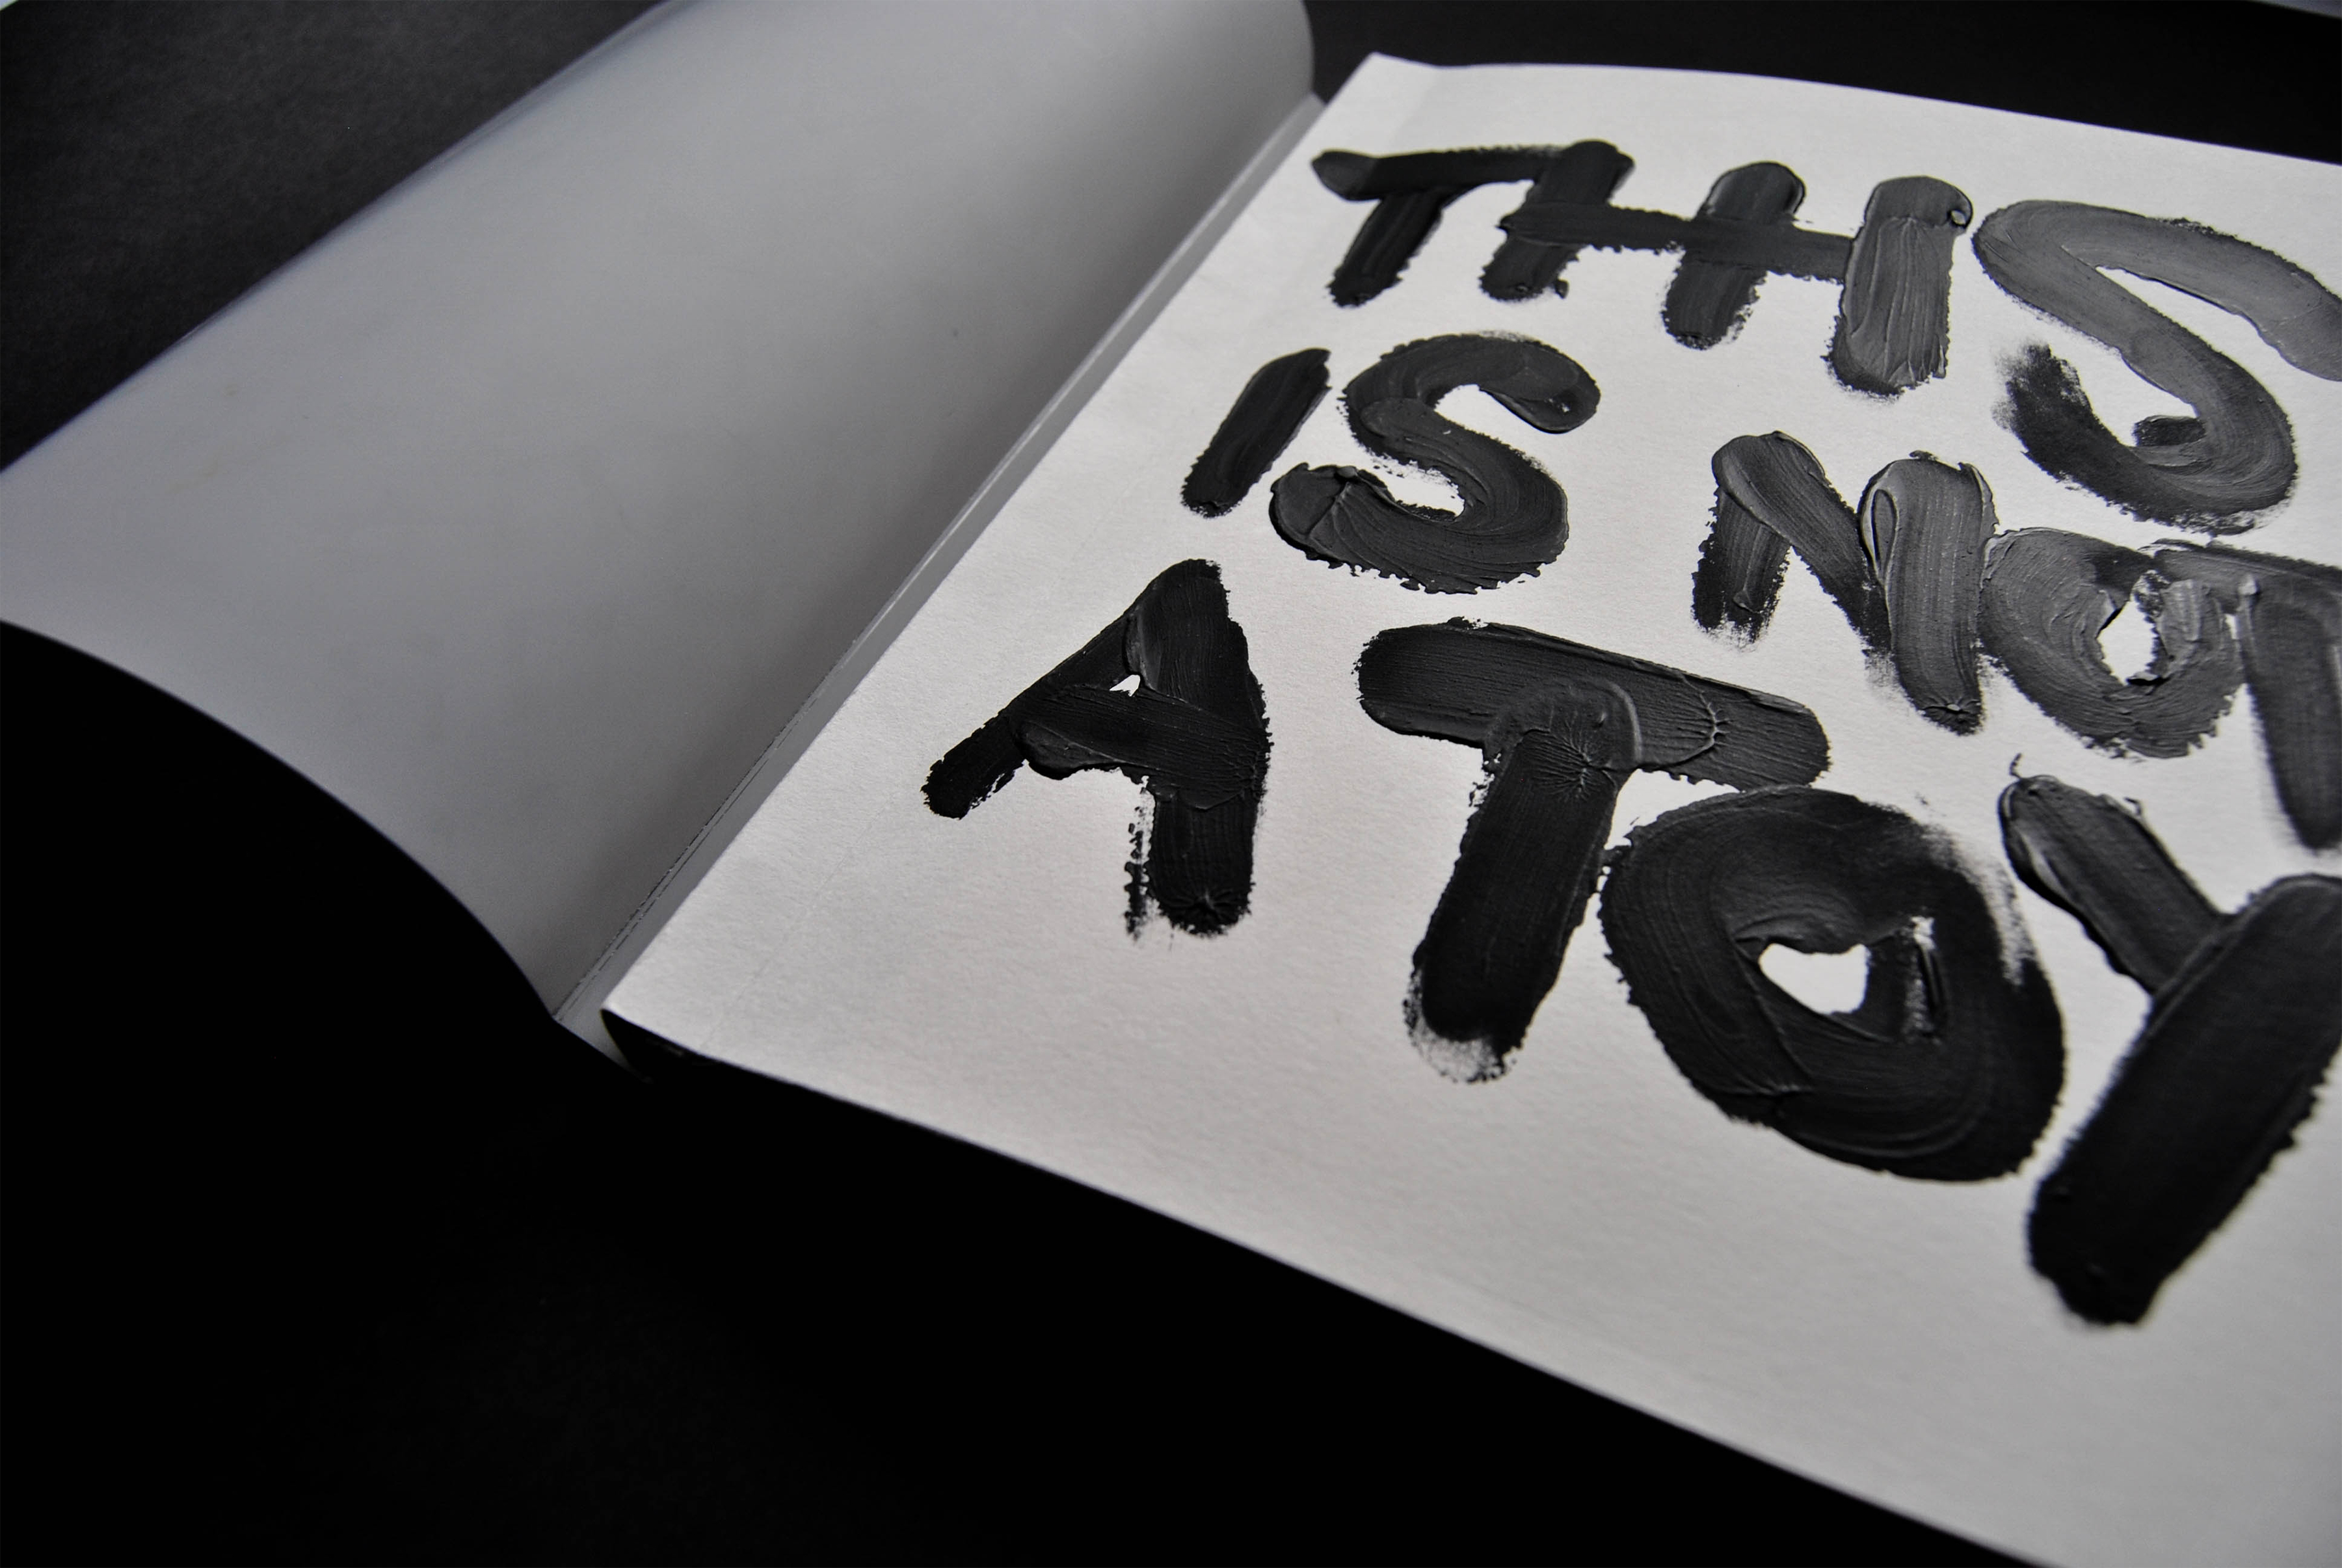 THIS
IS NOT
A TOY